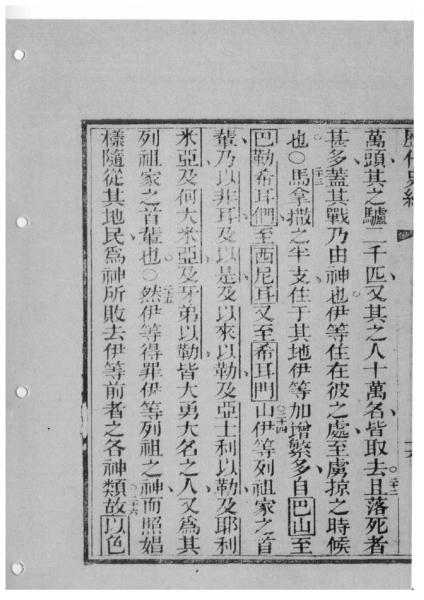 歷代史紀
萬頭其之驢二千匹又其之人十萬名皆取去且落死者
甚多蓋其戰乃由神也伊等住在彼之處至虜掠之時候
也○馬拿撒之半支住于其地伊等加增繁多自巴山至
巴勒希耳們至西尼耳又至希耳門山伊等列祖家之首
輩乃以非耳及以是及以來以勒及亞士利以勒及耶利
米亞及何大米亞及牙弟以勒皆大勇大名之人又爲其
列祖家之首輩也○然伊等得罪伊等列祖之神而照娼
樣隨從其地民爲神所敗去伊等前者之各神類故以色